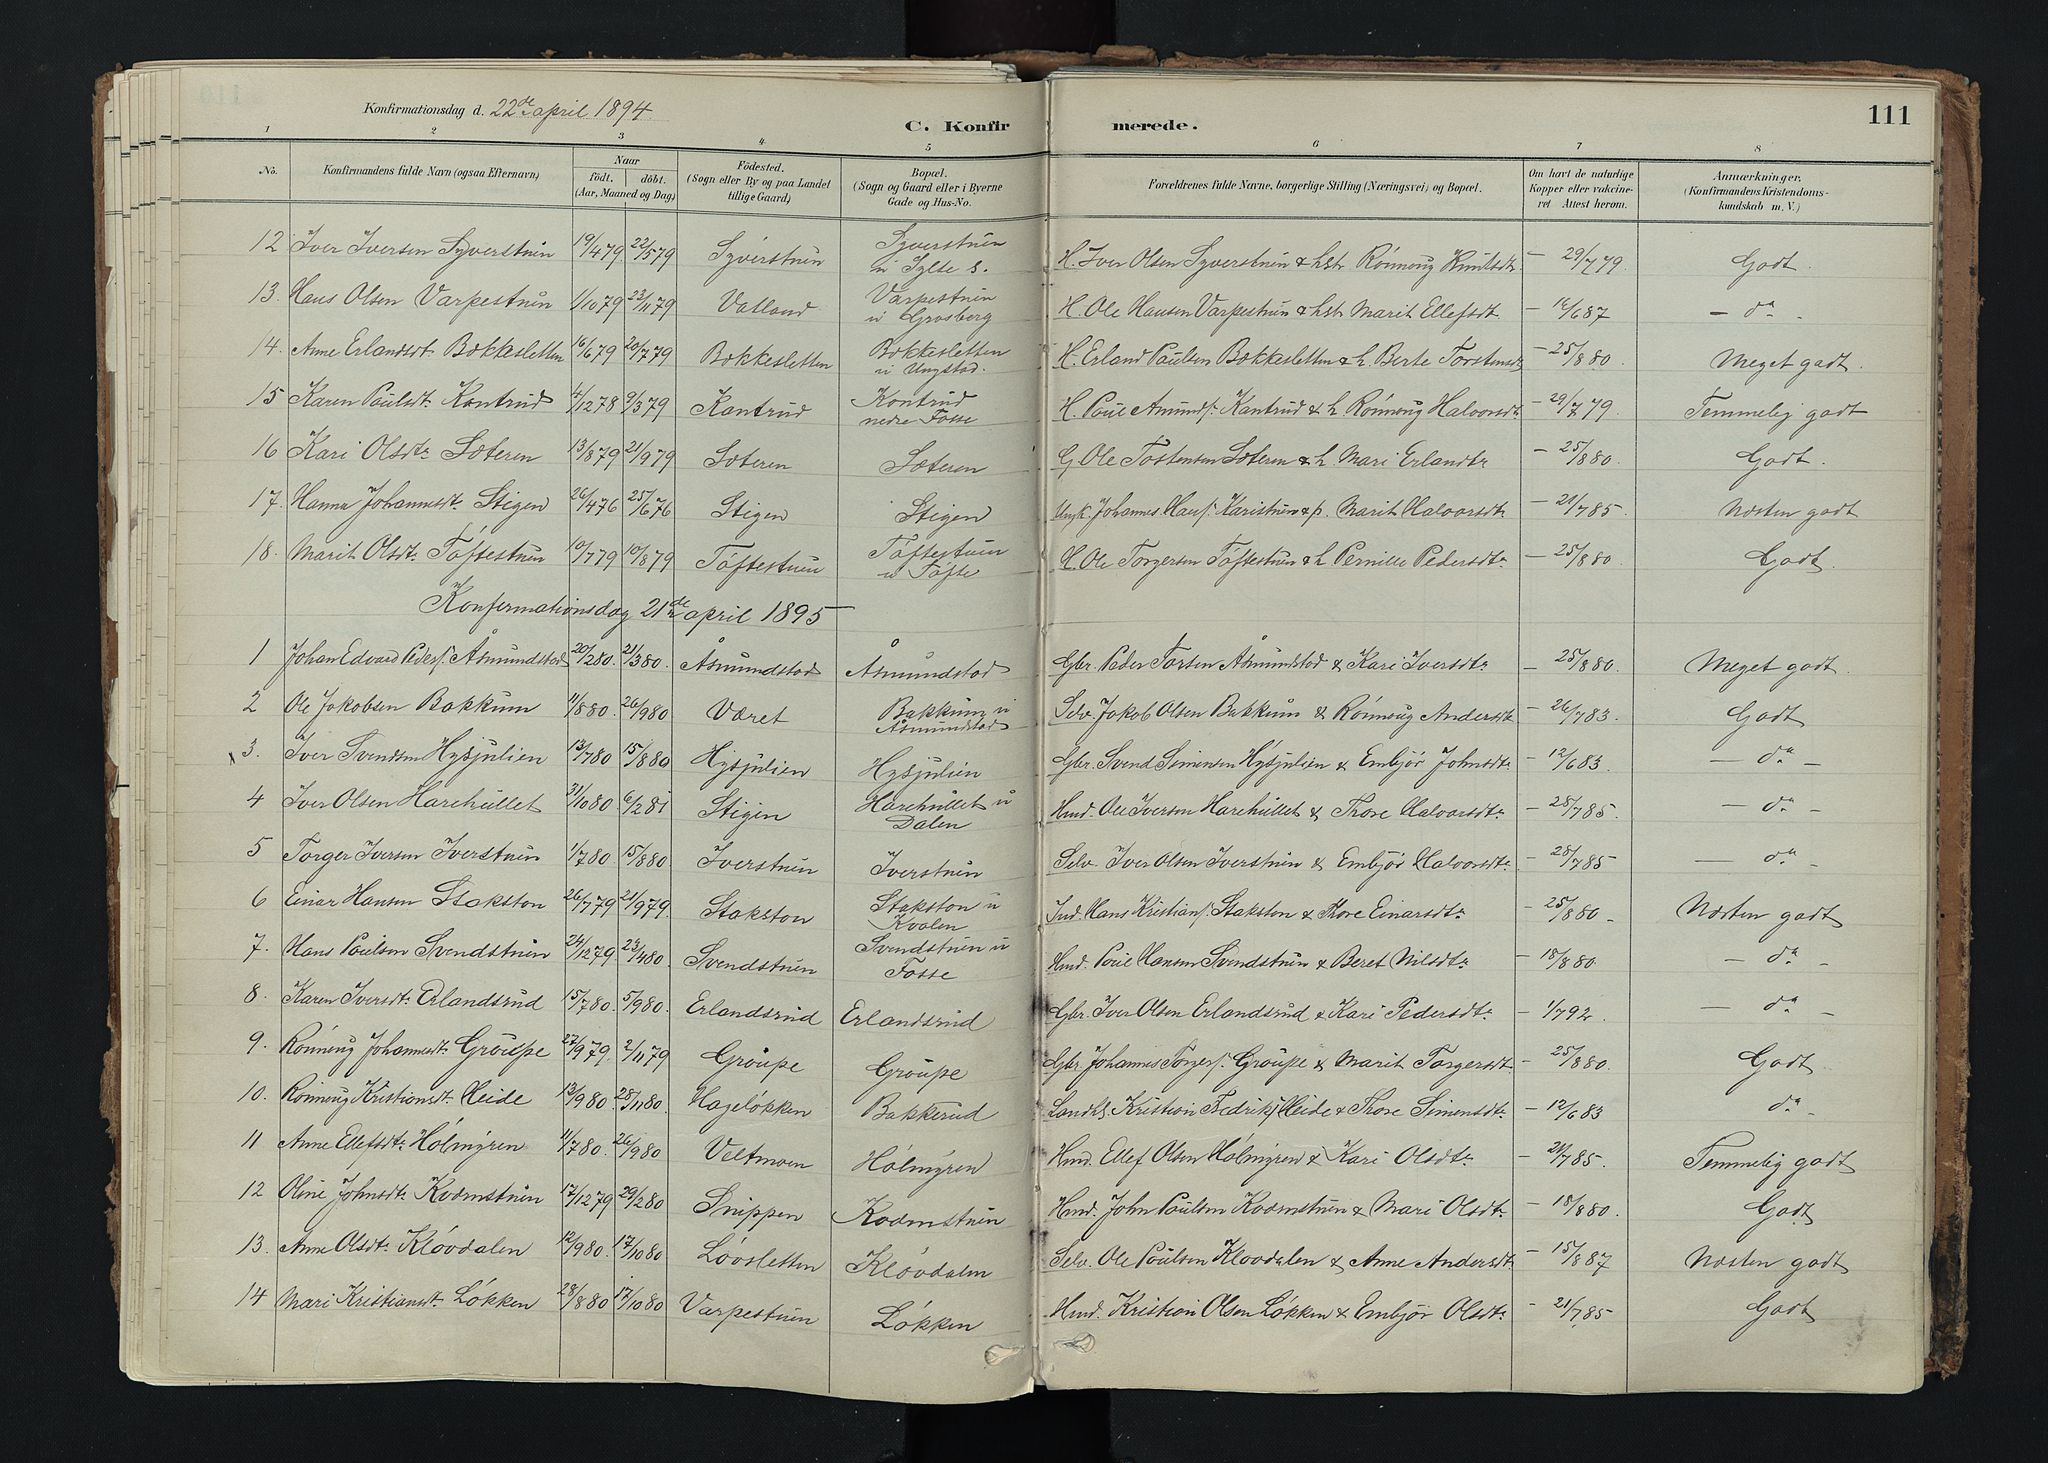 Konfirmationsdag d. 22de april 1894.
C. Konfirmerede.
111
1 2 3 4 5 6 7 8
No. Konfirmandens fulde Navn (ogsaa Efternavn) Naar födt. döbt. (Aar, Maaned og Dag) Födested. (Sogn eller By og paa Landet tillige Gaard) Bopæl. (Sogn og Gaard eller i Byerne Gade og Hus-No. Forældrenes fulde Navne, borgerlige Stilling (Næringsvei) og Bopæl. Om havt de naturlige Kopper eller vaccineret Attest herom. Anmærkninger. (Konfirmandens Kristendomskundskab m. V.)
12 Iver Iversen Syverstuen 19/4 79 22/5 79 Syverstuen Syverstuen u Sylte s. H. Iver Olsen Syverstuen & hst Rönnoug Knutsdt - 29/7 79. Godt.
13. Hans Olsen Varpestuen 1/10 79 23/11 79 Vatland Varpestuen u Grosberg H. Ole Hansen Varpestuen & hst Marit Ellefsdt. - 14/6 87 - do -
14. Anne Erlandsdt. Bakkesletten 16/6 79 20/7 79 Bakkesletten Bakkesletten u Ungstad. H. Erland Paulsen Bakkesletten & h. Berte Torstensdt - 25/8 80. Meget godt.
15 Karen Poulsdt. Kantrud 4/12 78 9/3 79 Kantrud Kantrud nedre Fosse H. Poul Amunds. Kantrud & h Rönnoug Halvorsdt. - 29/7 79. Temmelig godt
16 Kari Olsdtr Sæteren 13/8 79 21/9 79 Sæteren Sæteren G. Ole Tostensen Sæteren & h. Mari Erlandtr - 25/8 80. Godt.
17. Hanna Johannesdt. Stigen 26/4 76 25/6 76 Stigen Stigen Ungk. Johannes Hans. Karistuen & p. Marit Halvorsdtr - 21/7 85. Næsten godt
18. Marit Olsdt. Töftestuen 10/7 79 10/8 79 Töftestuen Töftestuen u Töfte H. Ole Torgersen Töftestuen & h Pernille Pedersdtr - 25/8 80. Godt.
Konfirmationsdag 21de april 1895
1 Johan Edvard Peders. Åsmundstad 20/2 80. 21/3 80. Åsmundstad Åsmundstad Gbr. Peder Torsten Åsmundstad & Kari Iversdtr - 25/8 80. Meget godt.
2 Ole Jakobsen Bakkum 11/8 80. 26/9 80 Været Bakkum u Åsmundstad Selv. Jakob Olsen Bakkum & Rönnoug Andersdt - 26/7 83. Godt
3. Iver Svendsen Hysjulien 13/7 80 15/8 80 Hysjulien Hysjulien Gbr. Svend Simensen Hysjulien & Embjör Johnsdtr - 12/6 83. - do -
4 Iver Olsen Harehullet 31/10 80 6/2 81 Stigen Harehullet u Dalen Hmd. Ole Iversen Harehullet & Thore Halvorsdtr - 28/7 85. - do -
5 Torger Iversen Iverstuen 1/7 80 15/8 80 Iverstuen Iverstuen Selv. Iver Olsen Iverstuen & Embjör Halvorsdtr - 28/7 85 - do -
6 Einar Hansen Stakston 26/7 79 21/9 79 Stakston Stakston u Kvalen Ind. Hans Kristians. Stakston & Thore Einarsdtr - 25/8 80 - Næsten godt
7. Hans Poulsen Svendstuen 24/12 79 23/4 80 Svendstuen Svendstuen u Fosse Hmd. Poul Hansen Svendstuen & Beret Nilsdtr - 18/8 80 - do -
8. Karen Iversdtr Erlandsrud 15/7 80. 5/9 80. Erlandsrud Erlandsrud Gbr. Iver Olsen Erlandsrud & Kari Pedersdtr - 1/7 92. - do -
9. Rönnoug Johannesdt. Gröupe 27/9 79. 2/11 79 Gröupe Gröupe Gbr. Johannes Torgers. Gröupe & Marit Torgersdt - 25/8 80. Godt
10. Rönnoug Kristiansdt. Heide 13/9 80. 28/11 80 Hagelökken Bakkerud Landhl. Kristian Fredriks. Heide & Thore Simensdtr - 12/6 83 do -
11 Anne Ellefsdtr Hölmyren 11/7 80. 26/9 80 Veltmoen Hölmyren Hmd. Ellef Olsen Hölmyren & Kari Olsdtr - 21/7 85. Temmelig godt
12 Oline Johnsdtr Kvamstuen 17/12 79 29/2 80 Snippen Kvamstuen Hmd. John Poulsen Kvamstuen & Mari Olsdtr - 18/8 80. Godt
13. Anne Olsdtr Klövdalen 12/9 80. 17/10 80 Lövsletten Klövdalen Selv. Ole Poulsen Klövdalen & Anne Andersdt - 15/8 87 Næsten godt
14 Mari Kristiansdt. Lökken 28/8 80 17/10 80 Varpestuen Lökken Hmd. Kristian Olsen Lökken & Embjör Olsdtr - 21/7 85 Godt